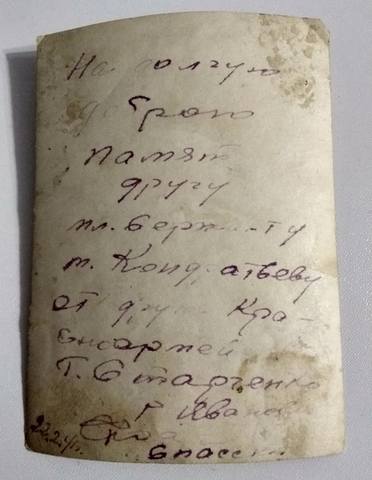 На долгую
добрую
память
другу
мл. сержанту
т. Кондратьеву
от друга Кра-
сноармей
Т. Стадченко
Г Иванов
22.2.41г.